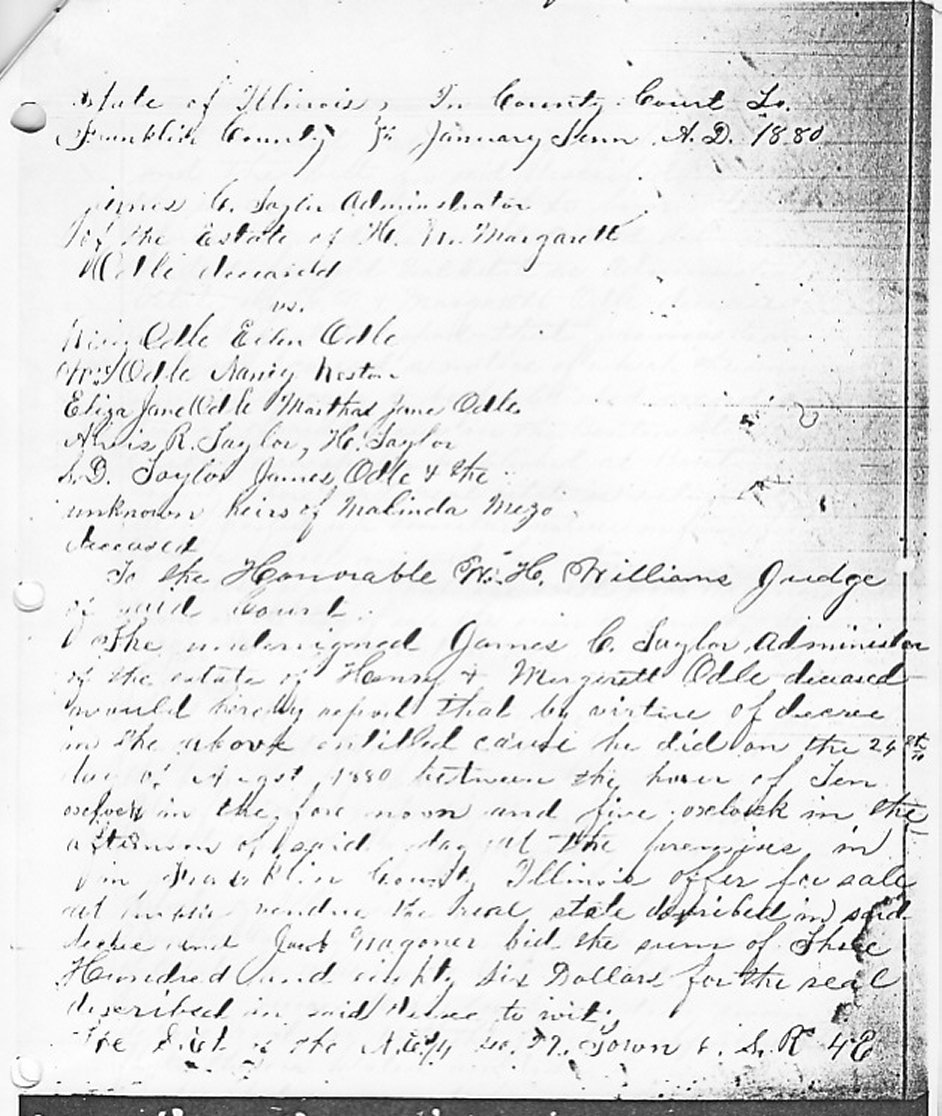 State of Illinois, In County Court To.
Franklin County January Term A.D. 1880
James C. Taylor Administrator
of the Estate of H. Margarett
Odle deceased
vs.
Odle Odle
Odle Nancy
Eliza Jane Odle Martha Jane Odle
R. Taylor, H. Taylor
S.D. Taylor James Odle & the
unknown heirs of Malinda Mezo
deceased
To the Honorable W. H. Williams Judge
of said Court
The undersigned James C. Taylor Administor
of the estate of Henry & Margarett Odle deceased
would hereby report that by virtue of decree
in the above entitled cause he did on the 24
day of August 1880 between the hour of Ten
oclock in the fore noon and five oclock in the
afternoon of said day at the premises in
in Franklin County Illinois offer for sale
at public vendue the real state described in said
decree and Jacob Wagoner bid the sum of Three
Hundred and Six Dollars for the real
described in said decree to wit:
The of the Town 6. S. R 4E